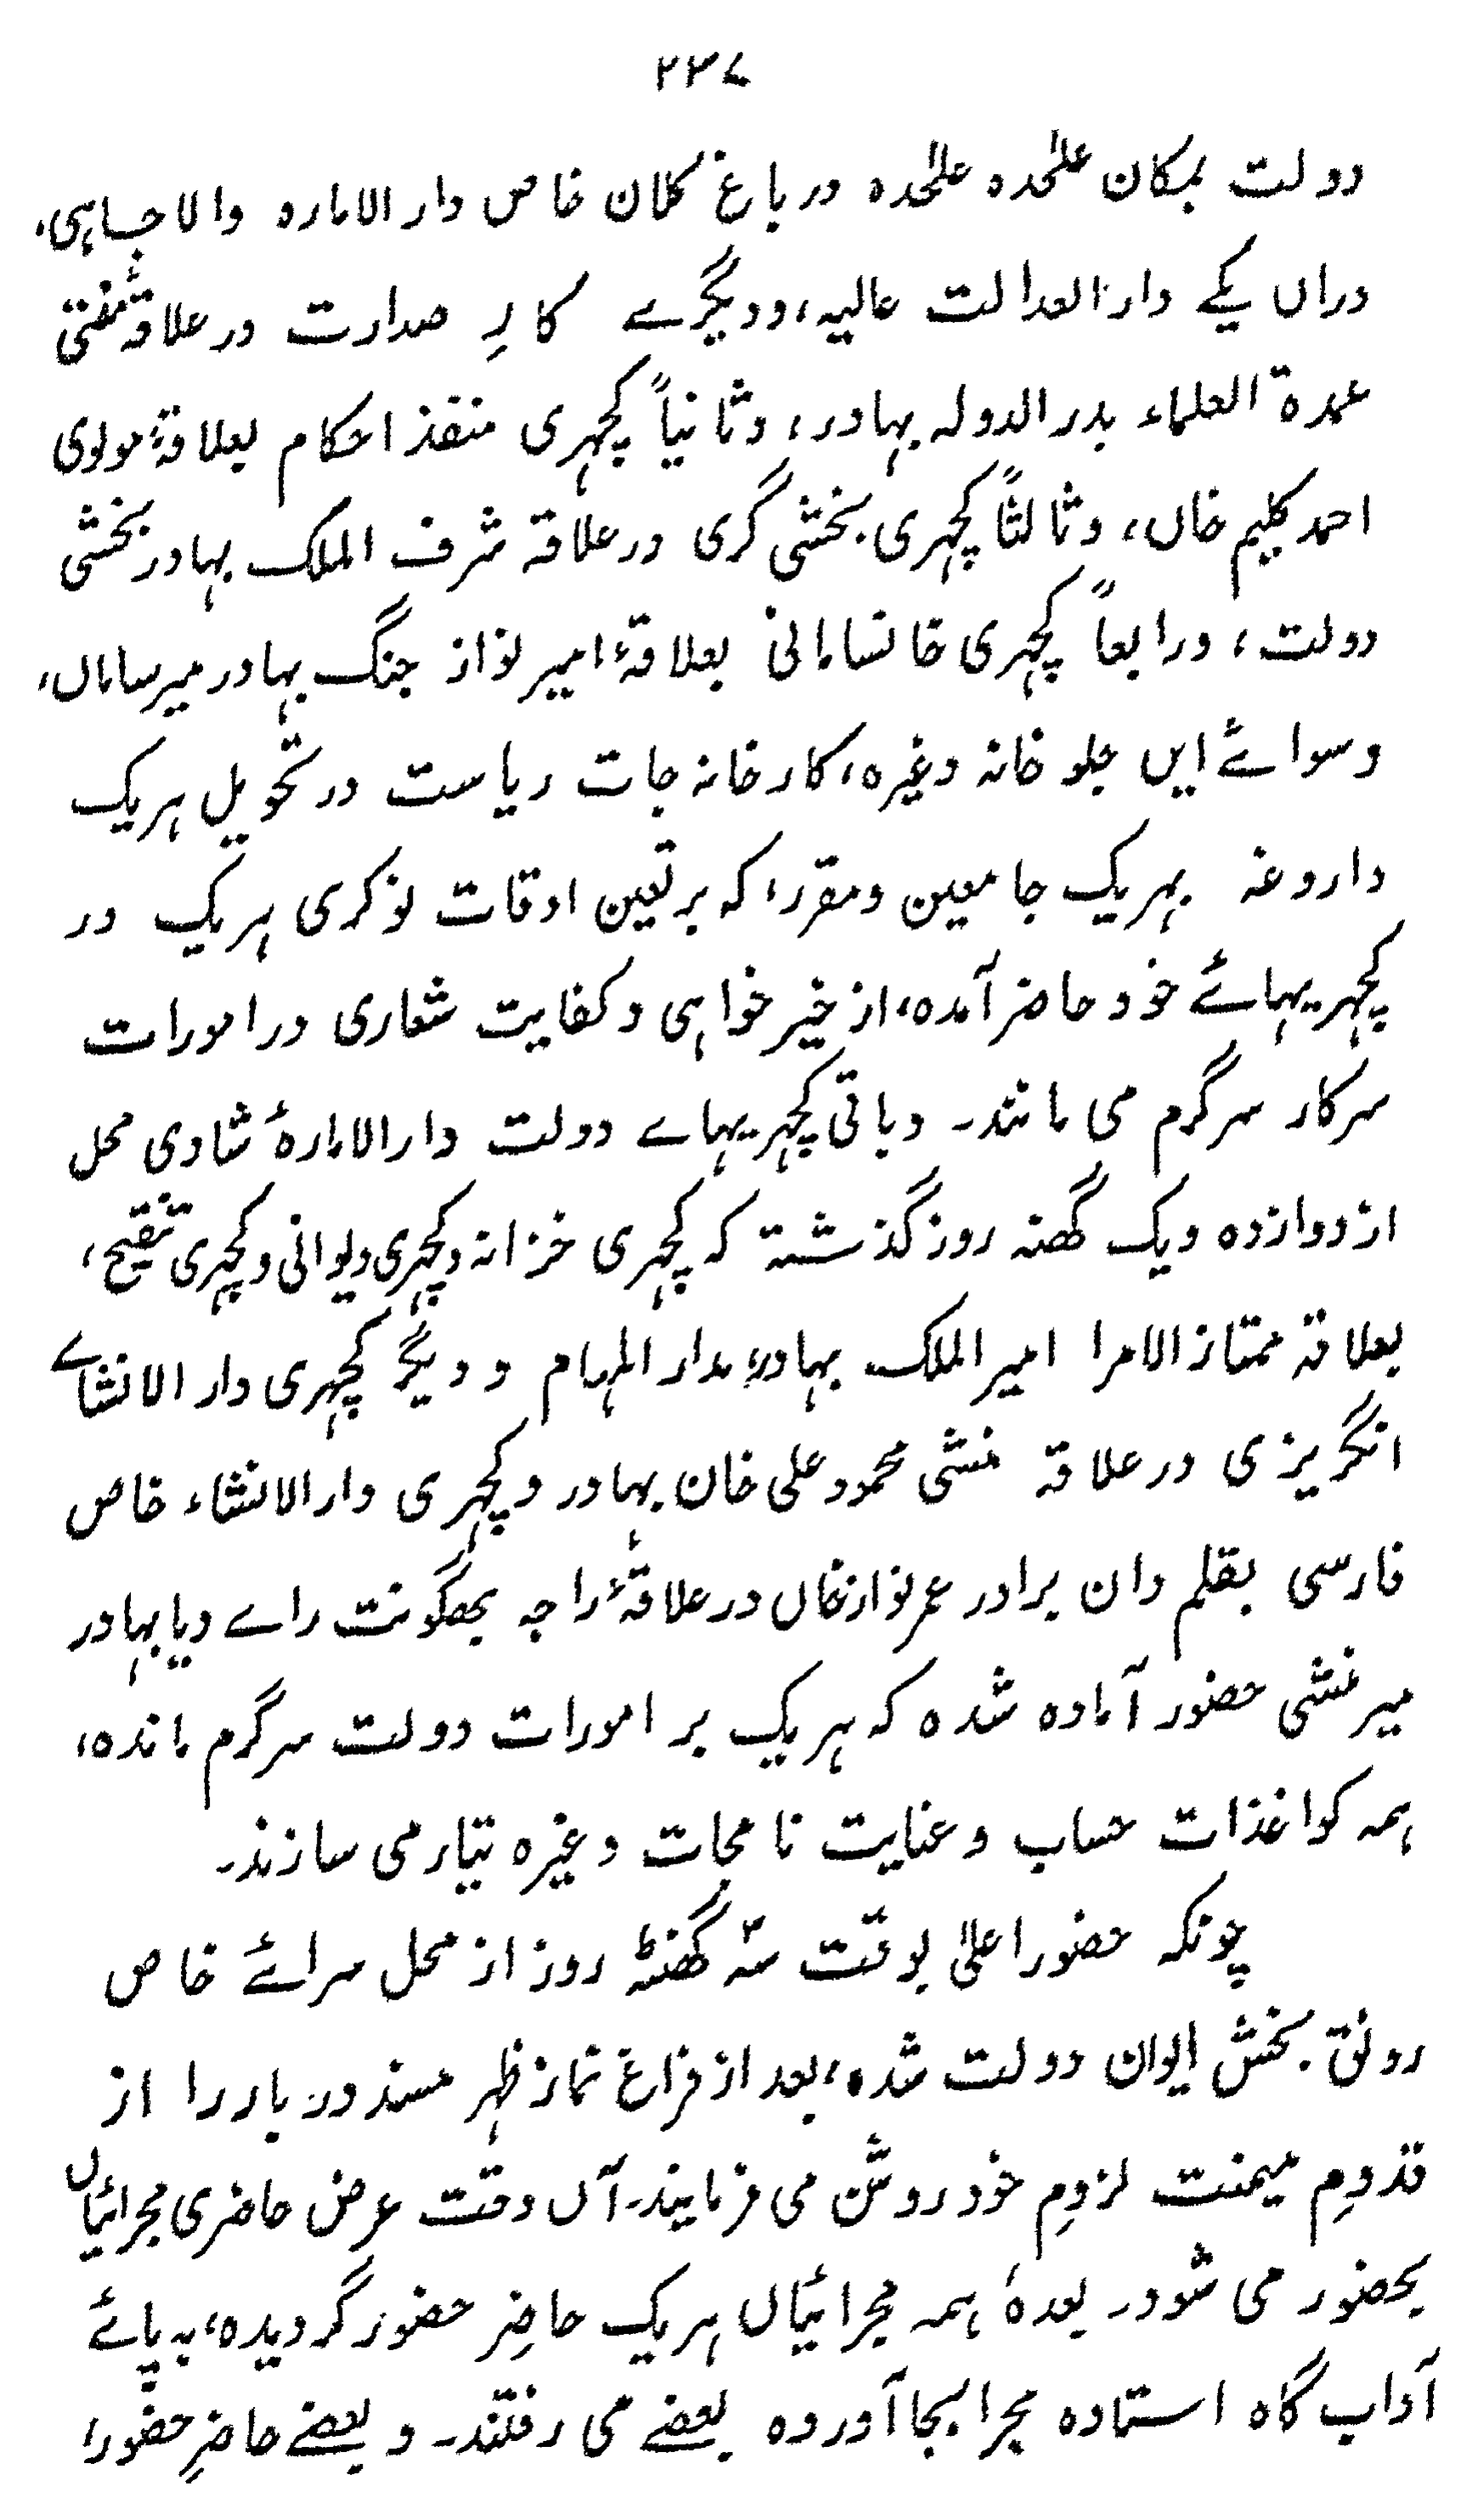 ۲۳۷
دولت بمکان علٰحدہ علٰحدہ در باغ کلان خاص دار الامارہ والا جاہی،
دراں یکے دار العدالت عالیہ، ودیگرے کارِ صدارت در علاقۂ مفتی
عمدۃ العلماء بدر الدولہ بہادر، وثانیاً کچہری منفذ احکام بعلاقۂ مولوی
احمد کلیم خاں، وثالثاً کچہری بخشی گری در علاقہ شرف الملک بہادر بخشی
دولت، ورابعاً کچہری خانسامانی بعلاقۂ امیر نواز جنگ بہادر میر ساماں،
وسوائے ایں جلو خانہ وغیرہ، کارخانہ جات ریاست در تحویل ہریک
داروغہ بہریک جا معین ومقرر، کہ بر تعین اوقات نوکری ہریک در
کچہریہائے خود حاضر آمدہ، از خیر خواہی وکفایت شعاری در امورات
سرکار سرگرم می مانند۔ وباقی کچہریہاے دولت دار الامارۂ شادی محل
از دوازدہ ویک گھنٹہ روز گذشتہ کہ کچہری خزانہ وکچہری دیوانی وکچہری تنقیح،
بعلاقہ ممتاز الامرا امیر الملک بہادر، مدار المہام ودیگر کچہری دار الانشاے
انگریزی در علاقہ منشی محمود علی خان بہادر وکچہری دار الانشاء خاص
فارسی بقلم دان برادر عمر نواز خاں در علاقۂ راجہ بھگونت راے دیا بہادر
میر منشی حضور آمادہ شدہ کہ ہریک بر امورات دولت سرگرم ماندہ،
ہمہ کواغذات حساب وعنایت نامجات وغیرہ تیار می سازند۔
چونکہ حضور اعلیٰ بوقت سہ گھنٹہ روز از محل سرائے خاص
رونق بخش ایوان دولت شدہ، بعد از فراغ نماز ظہر مسند دربار را از
قدومِ میمنت لزومِ خود روشن می فرمایند۔ آں وقت عرض حاضری مجرائیاں
بحضور می شود۔ بعدہٗ ہمہ مجرائیاں ہریک حاضرِ حضور گردیدہ، بہ پائے
آداب گاہ استادہ مجرا بجا آوردہ بعضے می رفتند۔ و بعضے حاضرِ حضور،